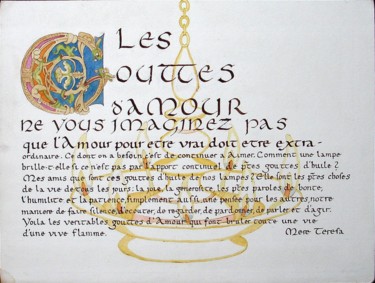 LES
GOUTTES
d'AMOUR
NE VOUS IMAGINEZ PAS
que l'Amour pour etre vrai doit etre extra-
ordinaire. Ce dont on a besoin, c'est de continuer a Aimer. Comment une lampe
brille-t-elle si ce n'est pas par l'apport continuel de ptes gouttes d'huile?
Mes amis que sont ces gouttes d'huile de nos lampes? Elle sont les ptes choses
de la vie de tous les jours: la joie, la generosite, les ptes paroles de bonte,
l'humilite et la patience, simplement aussi une pensee pour les autres, notre
maniere de faire silence, d'ecouter, de regarder, de pardonner, de parler et d'agir.
Voila les veritables gouttes d'Amour qui font bruler toute une vie
d'une vive flamme. Mere Teresa